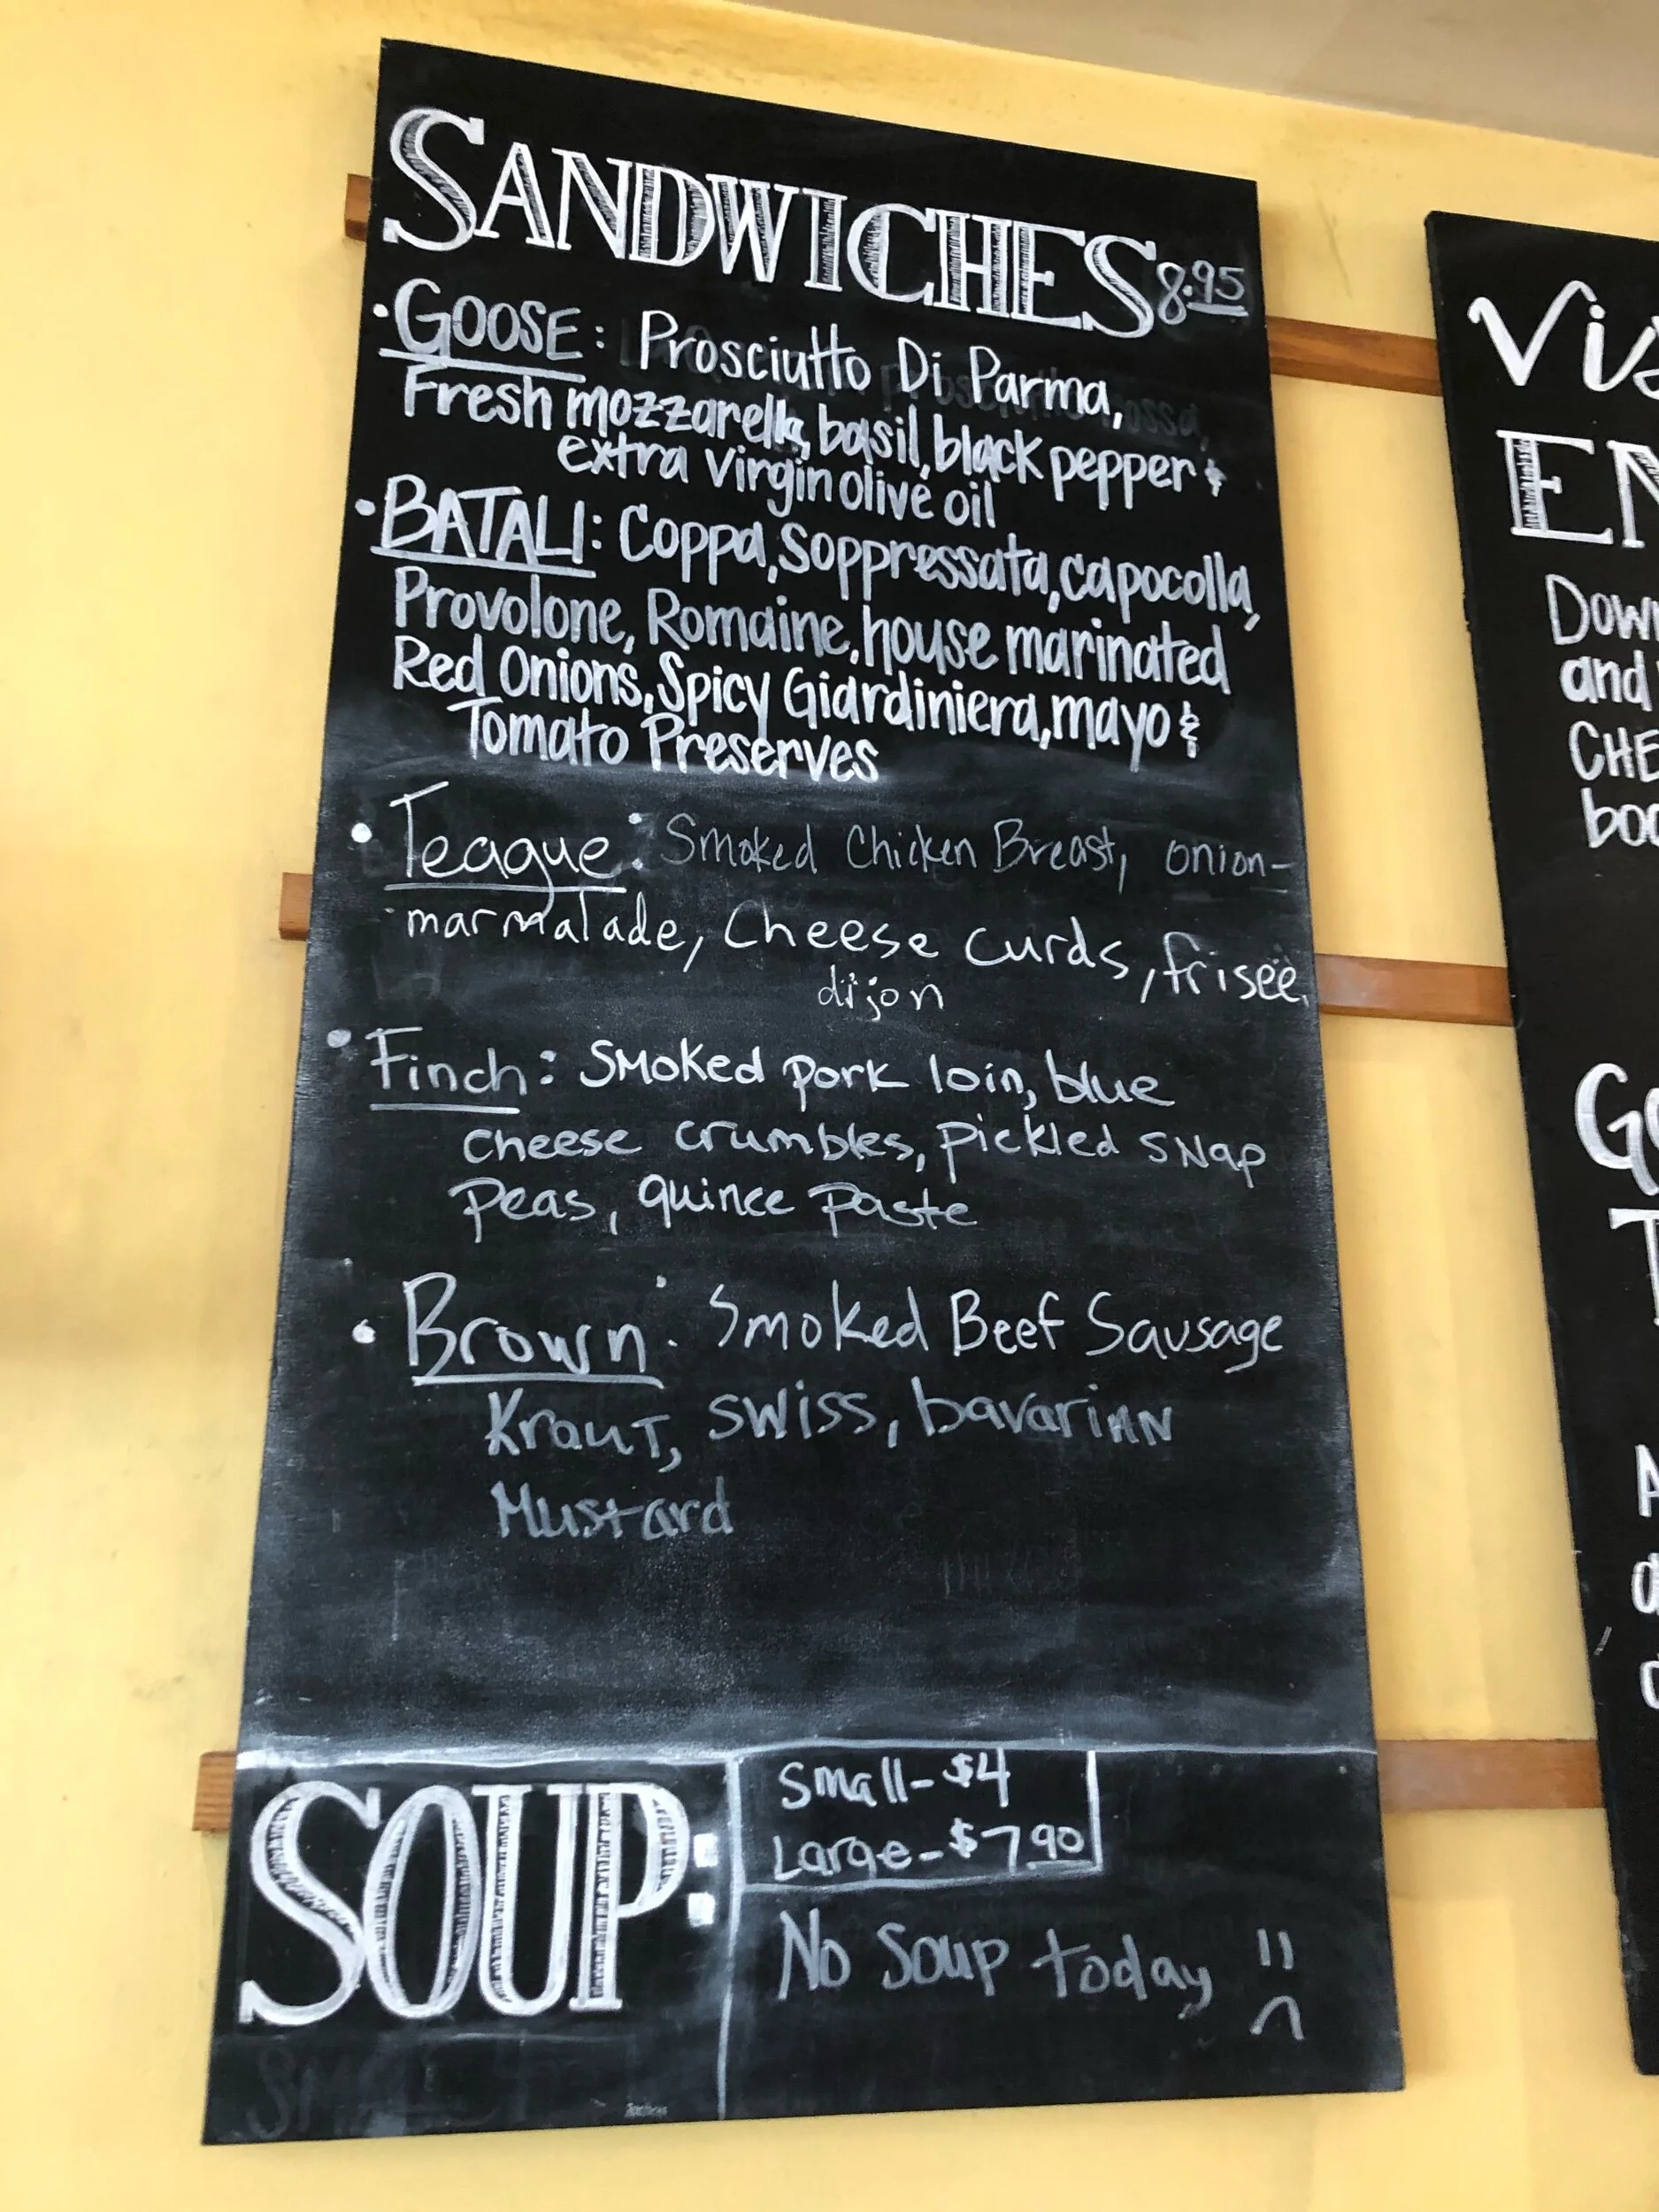 SANDWICHES 8.95
• GOOSE: Prosciutto Di Parma,
Fresh mozzarella, basil, black pepper &
extra virgin olive oil
• BATALI: Coppa, Soppressata, capocolla,
Provolone, Romaine, house marinated
Red Onions, Spicy Giardiniera, mayo &
Tomato Preserves
• Teague: Smoked Chicken Breast, onion-
marmalade, Cheese curds, frisée,
dijon
• Finch: Smoked pork loin, blue
cheese crumbles, pickled snap
peas, quince paste
• Brown: Smoked Beef Sausage
Kraut, swiss, bavarian
Mustard
SOUP:
Small - $4
Large - $7.90
No Soup today
Vis
EN
Down
and
CHE
boo
Go
T
A